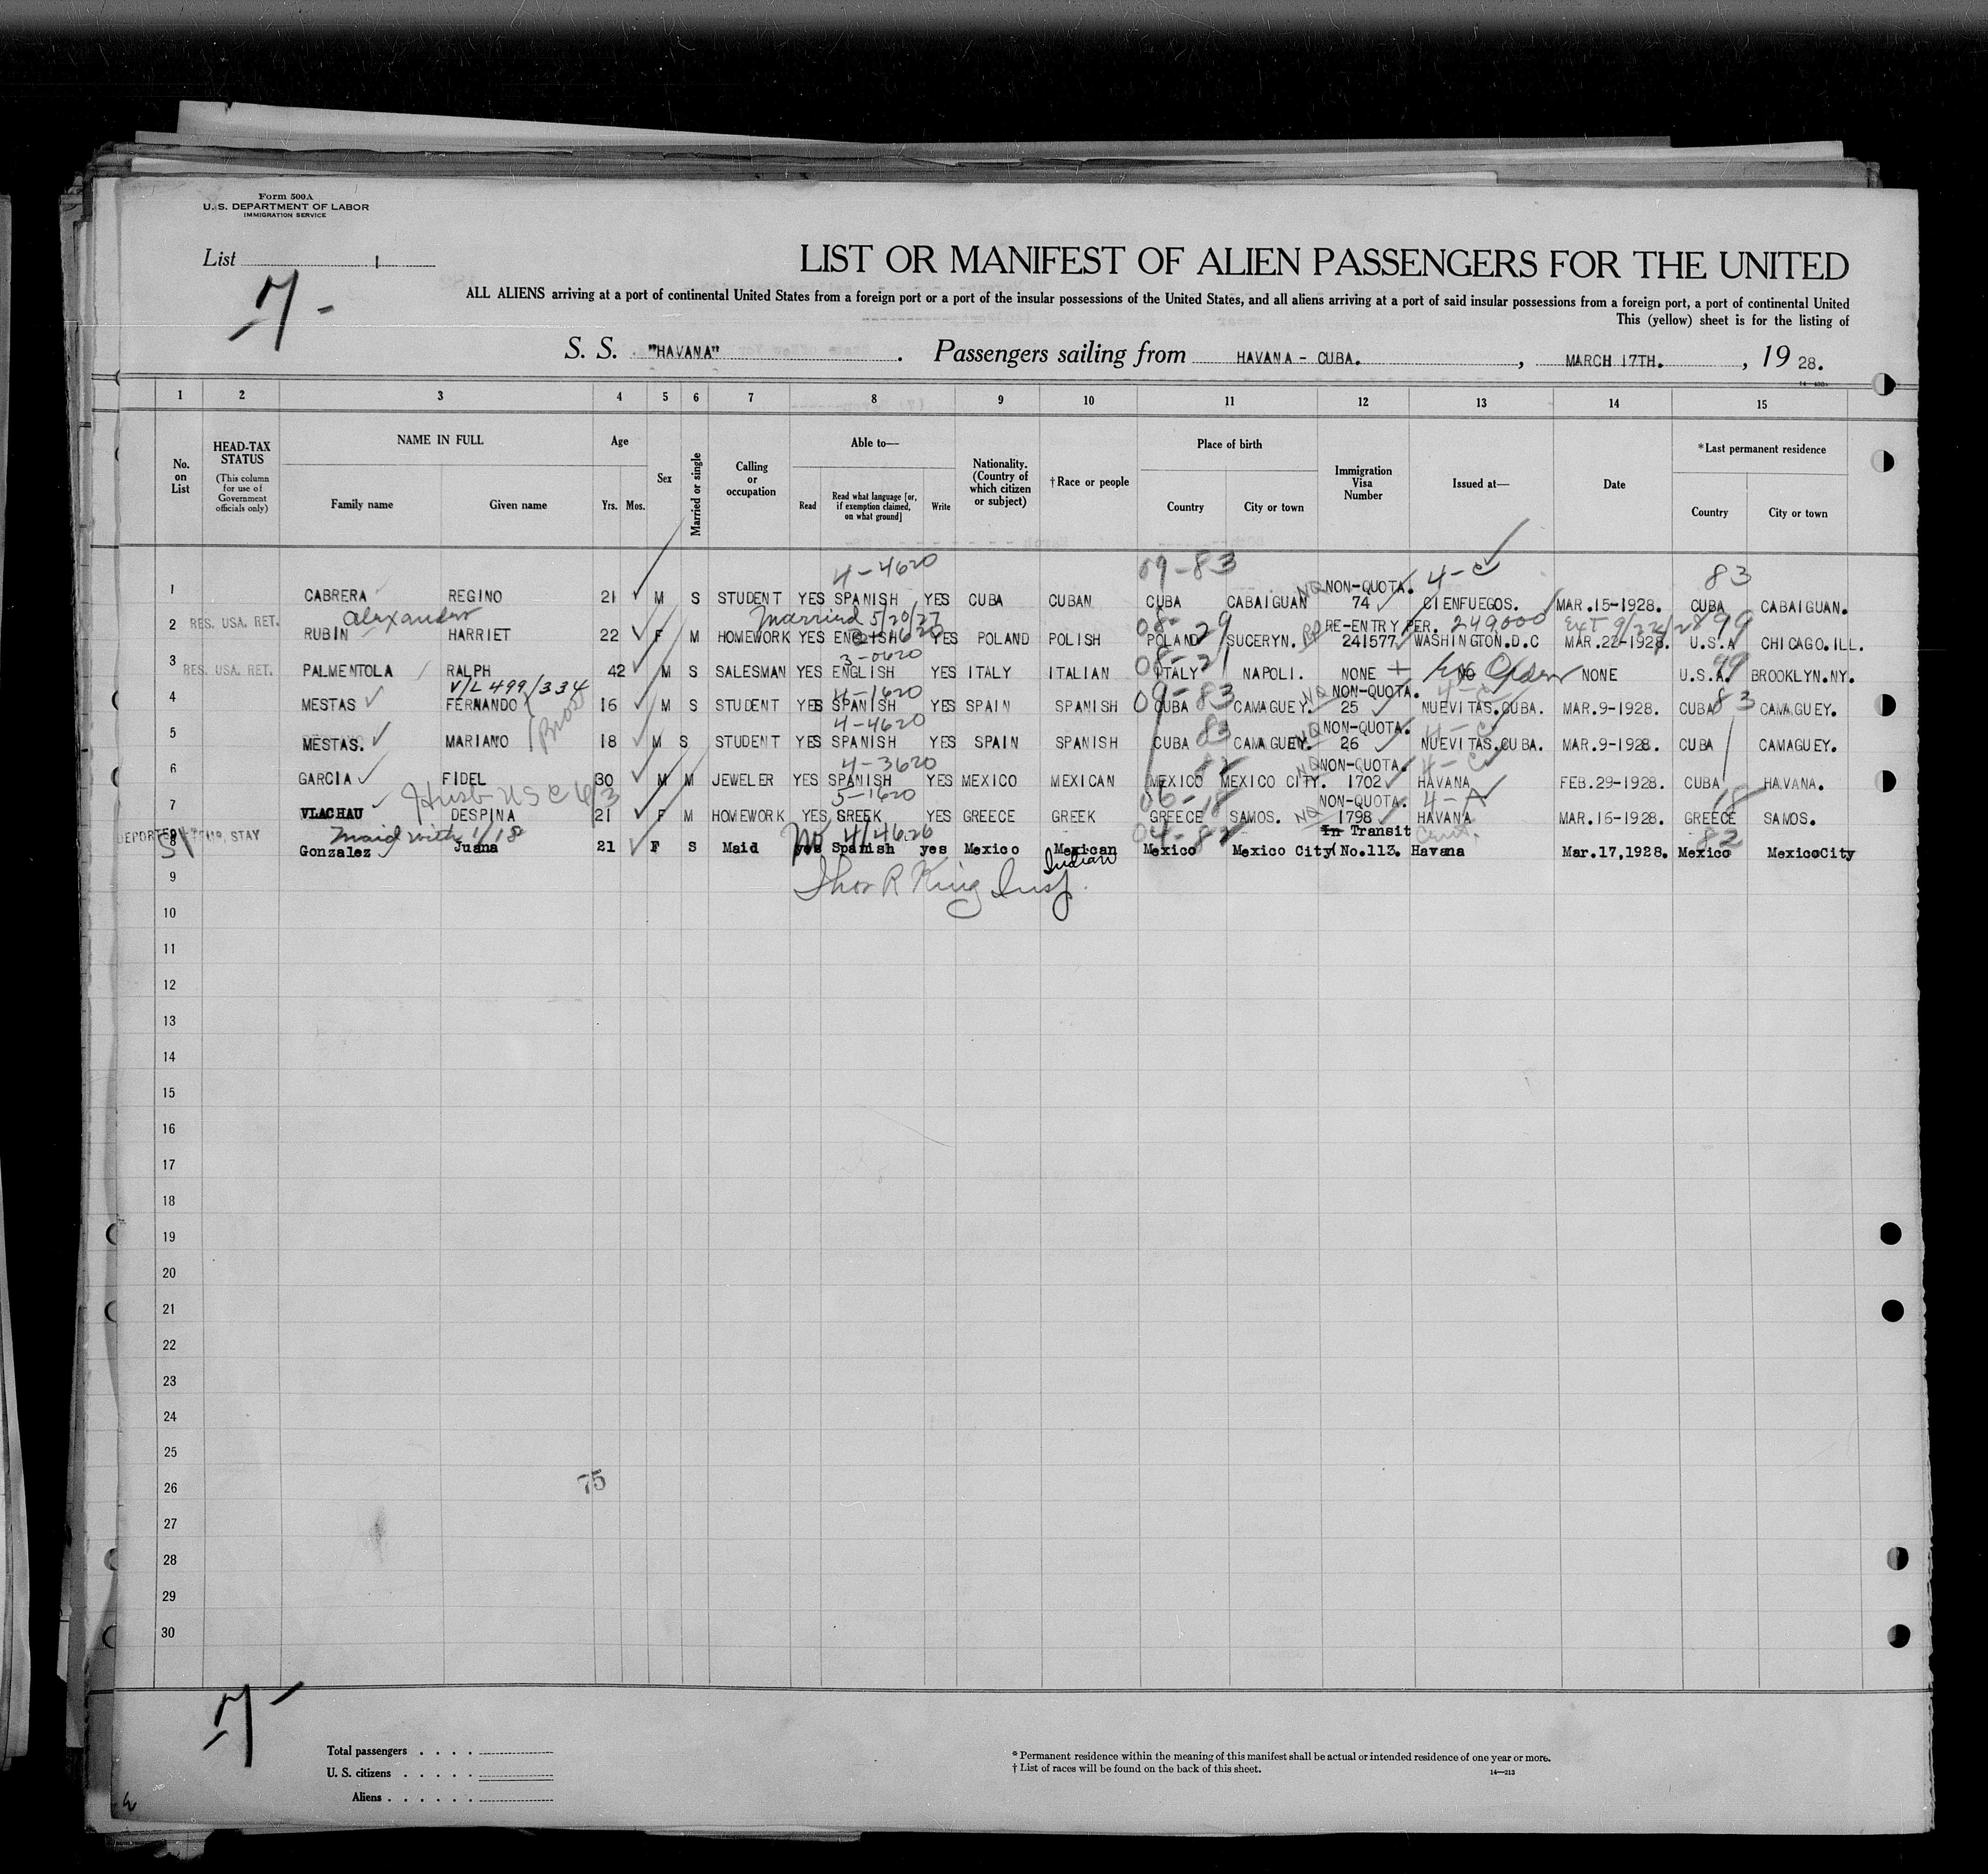 Form 500A
U. S. DEPARTMENT OF LABOR
IMMIGRATION SERVICE
List 1
7-
LIST OR MANIFEST OF ALIEN PASSENGERS FOR THE UNITED
ALL ALIENS arriving at a port of continental United States from a foreign port or a port of the insular possessions of the United States, and all aliens arriving at a port of said insular possessions from a foreign port, a port of continental United
This (yellow) sheet is for the listing of
S. S. "HAVANA". Passengers sailing from HAVANA - CUBA., MARCH 17TH., 19 28.
1 2 3 4 5 6 7 8 9 10 11 12 13 14 15
No. on List
HEAD-TAX STATUS (This column for use of Government officials only)
NAME IN FULL Family name Given name
Age Yrs. Mos.
Sex
Married or single
Calling or occupation
Able to— Read Read what language [or, if exemption claimed, on what ground] Write
Nationality. (Country of which citizen or subject)
†Race or people
Place of birth Country City or town
Immigration Visa Number
Issued at—
Date
*Last permanent residence Country City or town
4-4620 09-83 4-C 83
NQ NON-QUOTA.
1 CABRERA REGINO 21 M S STUDENT YES SPANISH YES CUBA CUBAN CUBA CABAIGUAN 74 CIENFUEGOS. MAR.15-1928. CUBA CABAIGUAN.
Alexander Married 5/20/27 08-29 RE-ENTRY PER. 249000 EXT 9/22/28 99
2 RES. USA. RET. RUBIN HARRIET 22 F M HOMEWORK YES ENGLISH YES POLAND POLISH POLAND SUCERYN. 241577 WASHINGTON.D.C MAR.22-1928. U.S.A CHICAGO.ILL.
3-0620 08-21 99
3 RES. USA. RET. PALMENTOLA RALPH 42 M S SALESMAN YES ENGLISH YES ITALY ITALIAN ITALY NAPOLI. NONE NO NONE U.S.A. BROOKLYN.NY.
V/L 499/334 4-1620 09-83 NQ NON-QUOTA. 4-C 83
4 MESTAS FERNANDO 16 M S STUDENT YES SPANISH YES SPAIN SPANISH CUBA CAMAGUEY. 25 NUEVITAS.CUBA. MAR.9-1928. CUBA CAMAGUEY.
Bros 4-4620 83 NQ NON-QUOTA. 4-C
5 MESTAS. MARIANO 18 M S STUDENT YES SPANISH YES SPAIN SPANISH CUBA CAMAGUEY. 26 NUEVITAS.CUBA. MAR.9-1928. CUBA CAMAGUEY.
4-3620 82 NQ NON-QUOTA. 4-C
6 GARCIA FIDEL 30 M M JEWELER YES SPANISH YES MEXICO MEXICAN MEXICO MEXICO CITY. 1702 HAVANA FEB.29-1928. CUBA HAVANA.
Husb USC 5-1620 06-18 NQ NON-QUOTA. 4-A 18
7 VLACHAU DESPINA 21 F M HOMEWORK YES GREEK YES GREECE GREEK GREECE SAMOS. 1798 HAVANA MAR.16-1928. GREECE SAMOS.
Maid with 1/18 No 04-82 In Transit 82
8 TEMP. STAY Gonzalez Juana 21 F S Maid yes Spanish yes Mexico Mexican Mexico Mexico City No.113. Havana Mar.17,1928. Mexico MexicoCity
Indian
9 Thos R King Insp.
10
11
12
13
14
15
16
17
18
19
20
21
22
23
24
25
26
75
27
28
29
30
7-
Total passengers
U. S. citizens
Aliens
* Permanent residence within the meaning of this manifest shall be actual or intended residence of one year or more.
† List of races will be found on the back of this sheet.
14—213